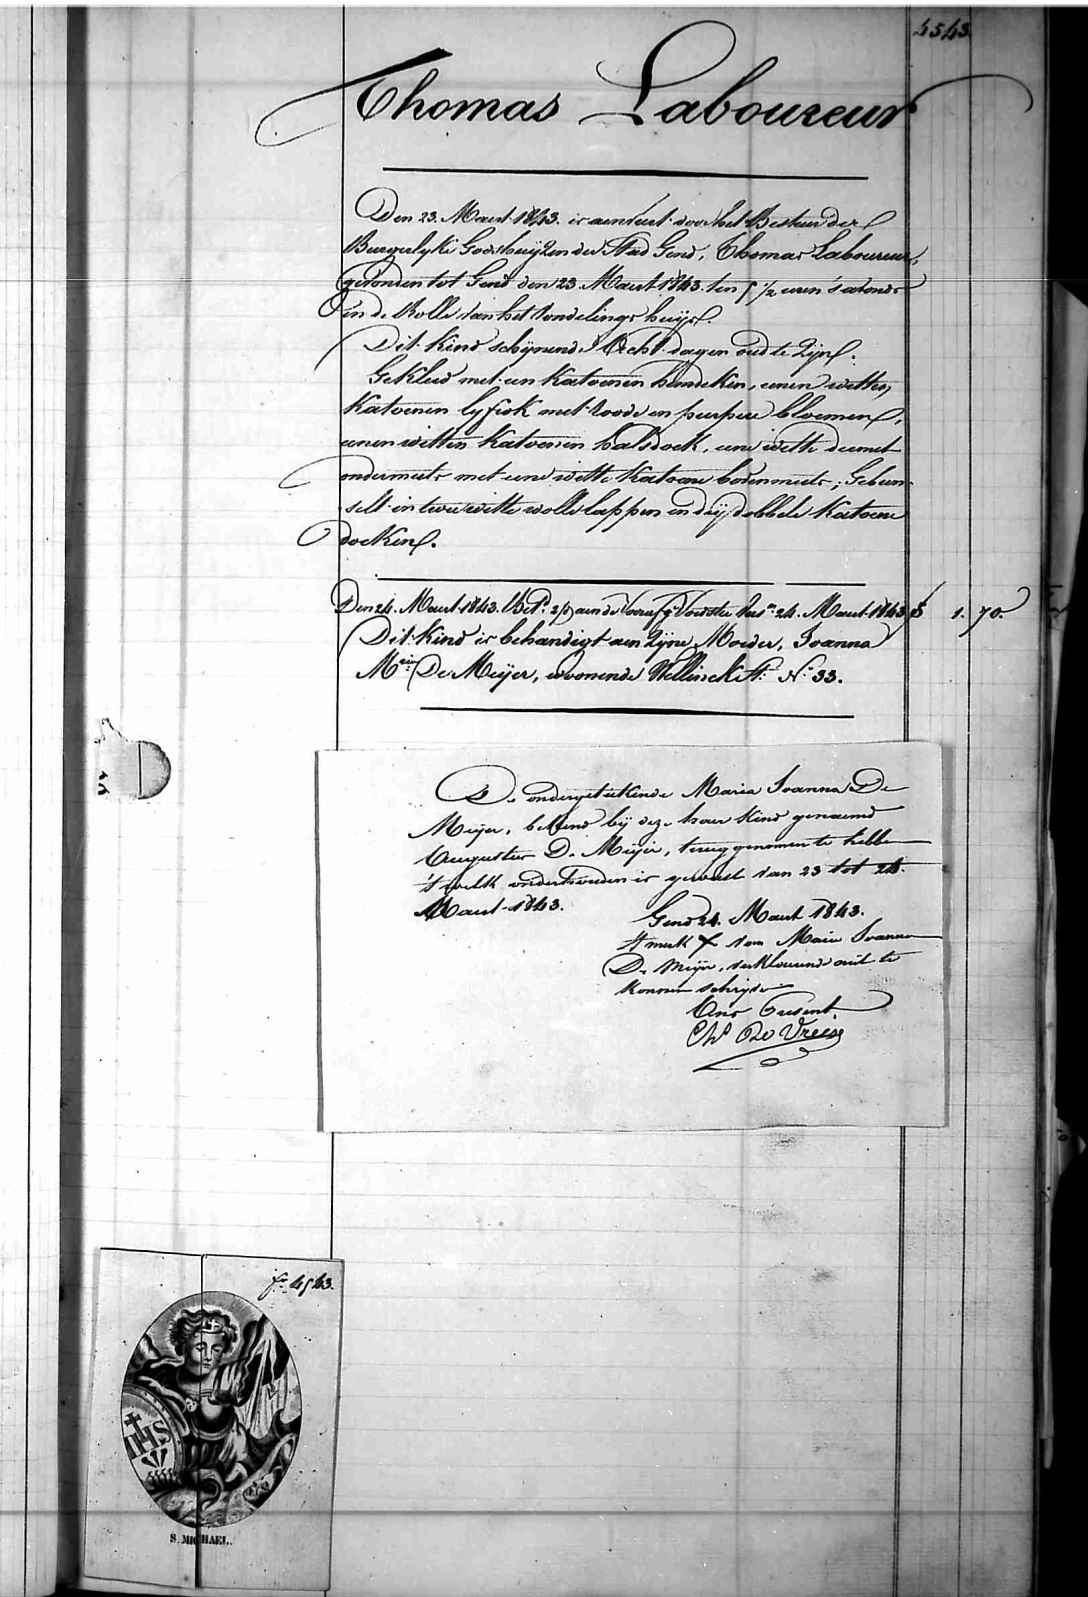 4543.
Thomas Laboureur
Den 23. Maart 1843. is aenveert door het Bestuer der
Burgerlyke Godshuyzen der Stad Gend, Thomas Laboureur,
gevonden tot Gend den 23 Maart 1843. ten 5 1/2 uren 's avonds
in de Rolle van het Vondelings huys.
Dit kind schynende Acht dagen oud te zyn.
Gekleed met een Katoenen hemdeken, eenen witten
Katoenen lyfrok met roode en purpere bloemen,
eenen witten Katoenen halsdoek, eene witte deemet
ondermuts met eene witte Katoene bovenmuts; Gebun-
selt in twee witte wolle lappen en dry dobbele Katoene
doeken.
Den 24. Maart 1843. aen de 24. Maart 1843 1. 70.
Dit Kind is behandigt aen zyne Moeder, Joanna
M.ria De Meÿer, woonende Wellinckstr: N.o 33.
De ondergeteekende Maria Joanna De
Meÿer, bekend bÿ deze haer Kind genaemd
Augustus De Meÿer, terug genomen te hebben
't welk onderhouden is geweest van 23 tot 24.
Maart 1843.
Gend 24. Maart 1843.
't merk X van Marie Joanna
De Meÿer, verklaerende niet te
konnen schryven
Ons Present.
Ch.s De Vreese
f.o 4543.
IHS
S. MICHAEL.